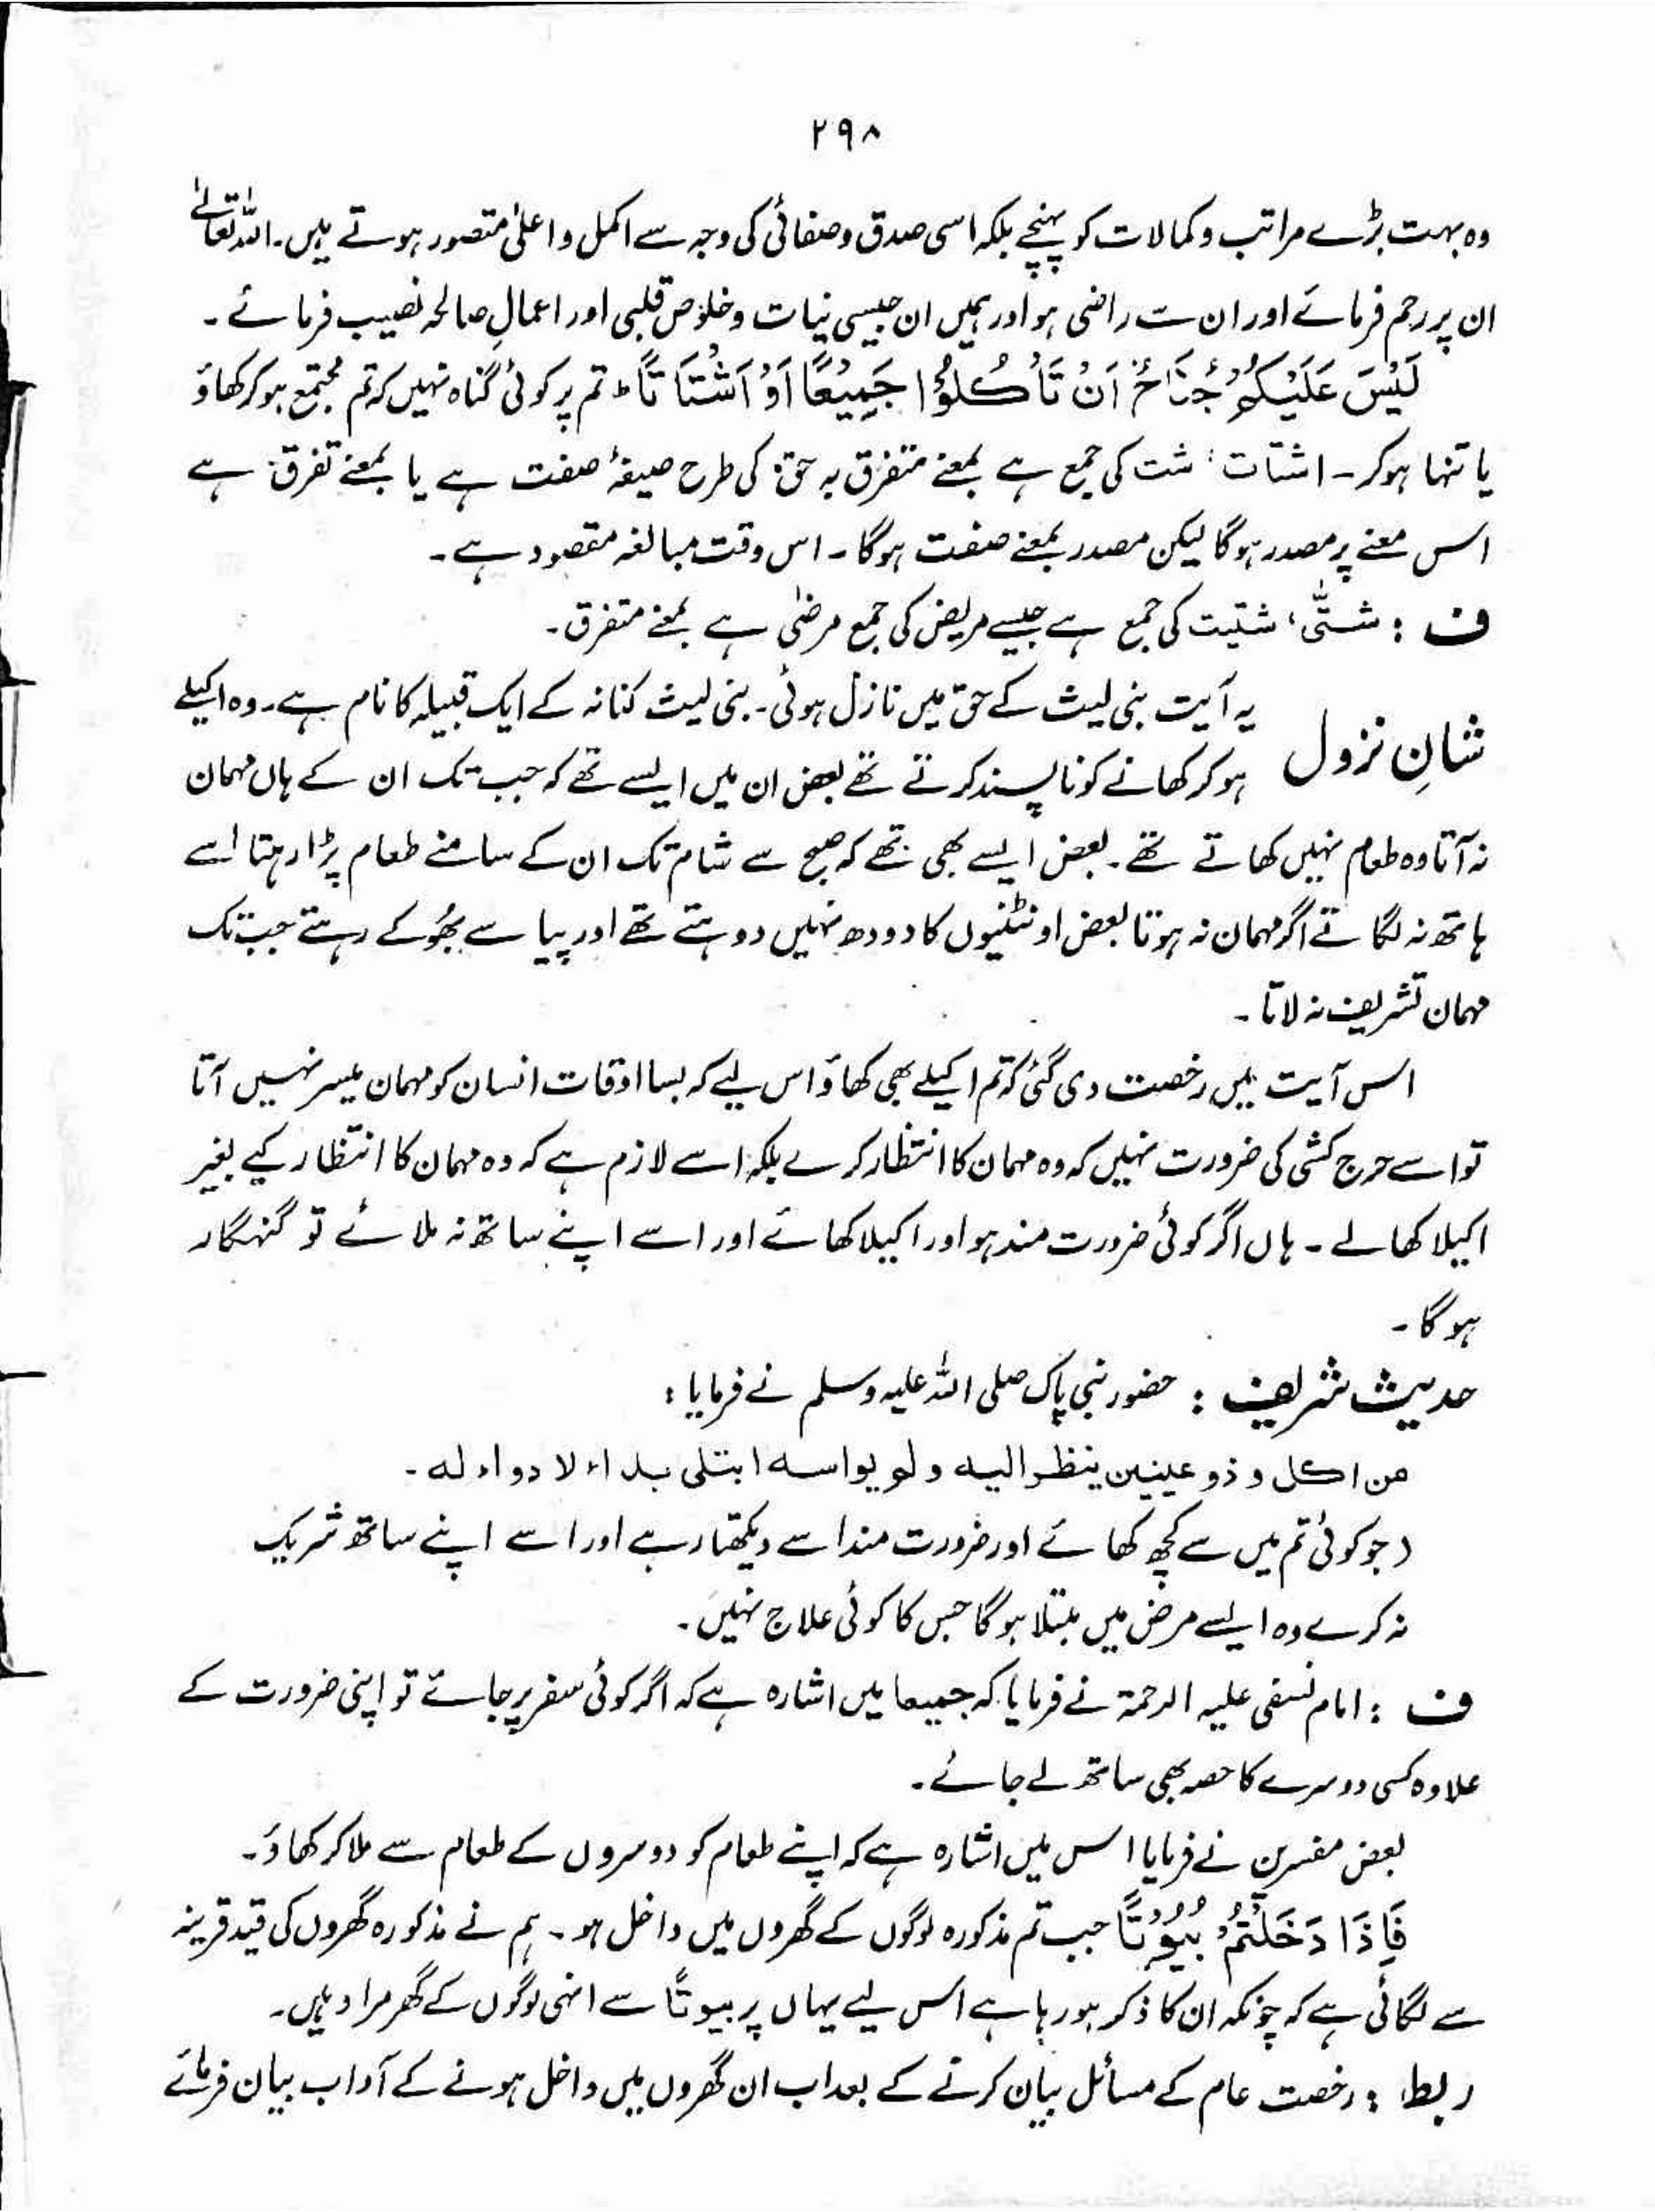 ۲۹۸
وہ بہت بڑے مراتب و کمالات کو پہنچے بلکہ اسی صدق و صفائی کی وجہ سے اکمل و اعلیٰ متصور ہوتے ہیں۔ اللہ تعالےٰ
ان پر رحم فرمائے اور ان سے راضی ہو اور ہمیں ان جیسی نیات و خلوص قلبی اور اعمالِ صالحہ نصیب فرمائے۔
لَيْسَ عَلَيْكُمْ جُنَاحٌ اَنْ تَأْكُلُوْا جَمِيْعًا اَوْ اَشْتَاتًا ط تم پر کوئی گناہ نہیں کہ تم مجتمع ہو کر کھاؤ
یا تنہا ہو کر۔ اشتات، شت کی جمع ہے بمعنے متفرق یہ حق کی طرح صیغۂ صفت ہے یا بمعنے تفرق ہے
اس معنے پر مصدر ہوگا لیکن مصدر بمعنے صفت ہوگا۔ اس وقت مبالغہ مقصود ہے۔
ف : شتّٰی، شتیت کی جمع ہے جیسے مریض کی جمع مرضٰی ہے بمعنے متفرق۔
شانِ نزول یہ آیت بنی لیث کے حق میں نازل ہوئی۔ بنی لیث کنانہ کے ایک قبیلہ کا نام ہے۔ وہ اکیلے
ہو کر کھانے کو ناپسند کرتے تھے بعض ان میں ایسے تھے کہ جب تک ان کے ہاں مہمان
نہ آتا وہ طعام نہیں کھاتے تھے۔ بعض ایسے بھی تھے کہ صبح سے شام تک ان کے سامنے طعام پڑا رہتا اسے
ہاتھ نہ لگاتے اگر مہمان نہ ہوتا بعض اونٹنیوں کا دودھ نہیں دوہتے تھے اور پیاسے بھُوکے رہتے جب تک
مہمان تشریف نہ لاتا۔
اس آیت میں رخصت دی گئی کہ تم اکیلے بھی کھاؤ اس لیے کہ بسا اوقات انسان کو مہمان میسر نہیں آتا
تو اسے حرج کشی کی ضرورت نہیں کہ وہ مہمان کا انتظار کرے بلکہ اسے لازم ہے کہ وہ مہمان کا انتظار کیے بغیر
اکیلا کھالے۔ ہاں اگر کوئی ضرورت مند ہو اور اکیلا کھائے اور اسے اپنے ساتھ نہ ملائے تو گنہگار
ہوگا۔
حدیث شریف : حضور نبی پاک صلی اللہ علیہ وسلم نے فرمایا :
من اكل و ذو عينين ينظر اليه ولم يواسه ابتلى بداء لا دواء له۔
(جو کوئی تم میں سے کچھ کھائے اور ضرورت مند اسے دیکھتا رہے اور اسے اپنے ساتھ شریک
نہ کرے وہ ایسے مرض میں مبتلا ہوگا جس کا کوئی علاج نہیں۔
ف : امام نسفی علیہ الرحمۃ نے فرمایا کہ جمیعا میں اشارہ ہے کہ اگر کوئی سفر پر جائے تو اپنی ضرورت کے
علاوہ کسی دوسرے کا حصہ بھی ساتھ لے جائے۔
بعض مفسرین نے فرمایا اس میں اشارہ ہے کہ اپنے طعام کو دوسروں کے طعام سے ملا کر کھاؤ۔
فَاِذَا دَخَلْتُمْ بُيُوْتًا جب تم مذکورہ لوگوں کے گھروں میں داخل ہو۔ ہم نے مذکورہ گھروں کی قید قرینہ
سے لگائی ہے کہ چونکہ ان کا ذکر ہو رہا ہے اس لیے یہاں پر بیوتًا سے انہی لوگوں کے گھر مراد ہیں۔
ربط : رخصت عام کے مسائل بیان کرنے کے بعد اب ان گھروں میں داخل ہونے کے آداب بیان فرمائے